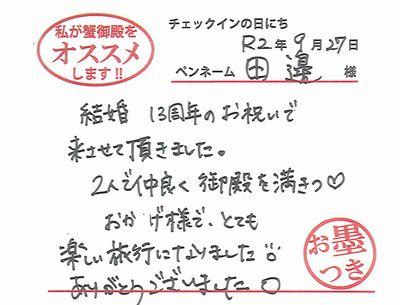 私が蟹御殿を
オススメ
します!!
チェックインの日にち
R2年9月27日
ペンネーム 田邉 様
結婚 13周年のお祝いで
来させて頂きました。
2人で仲良く御殿を満きつ♡
おかげ様で、とても
楽しい旅行になりました
ありがとうございました
お墨
つき